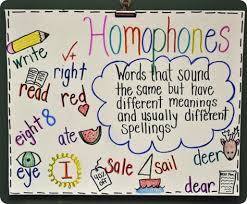 Homophones
write
right
read
red
Words that sound
the same but have
different meanings
and usually different
spellings
eight 8
ate
eye
I
sale
sail
deer
dear